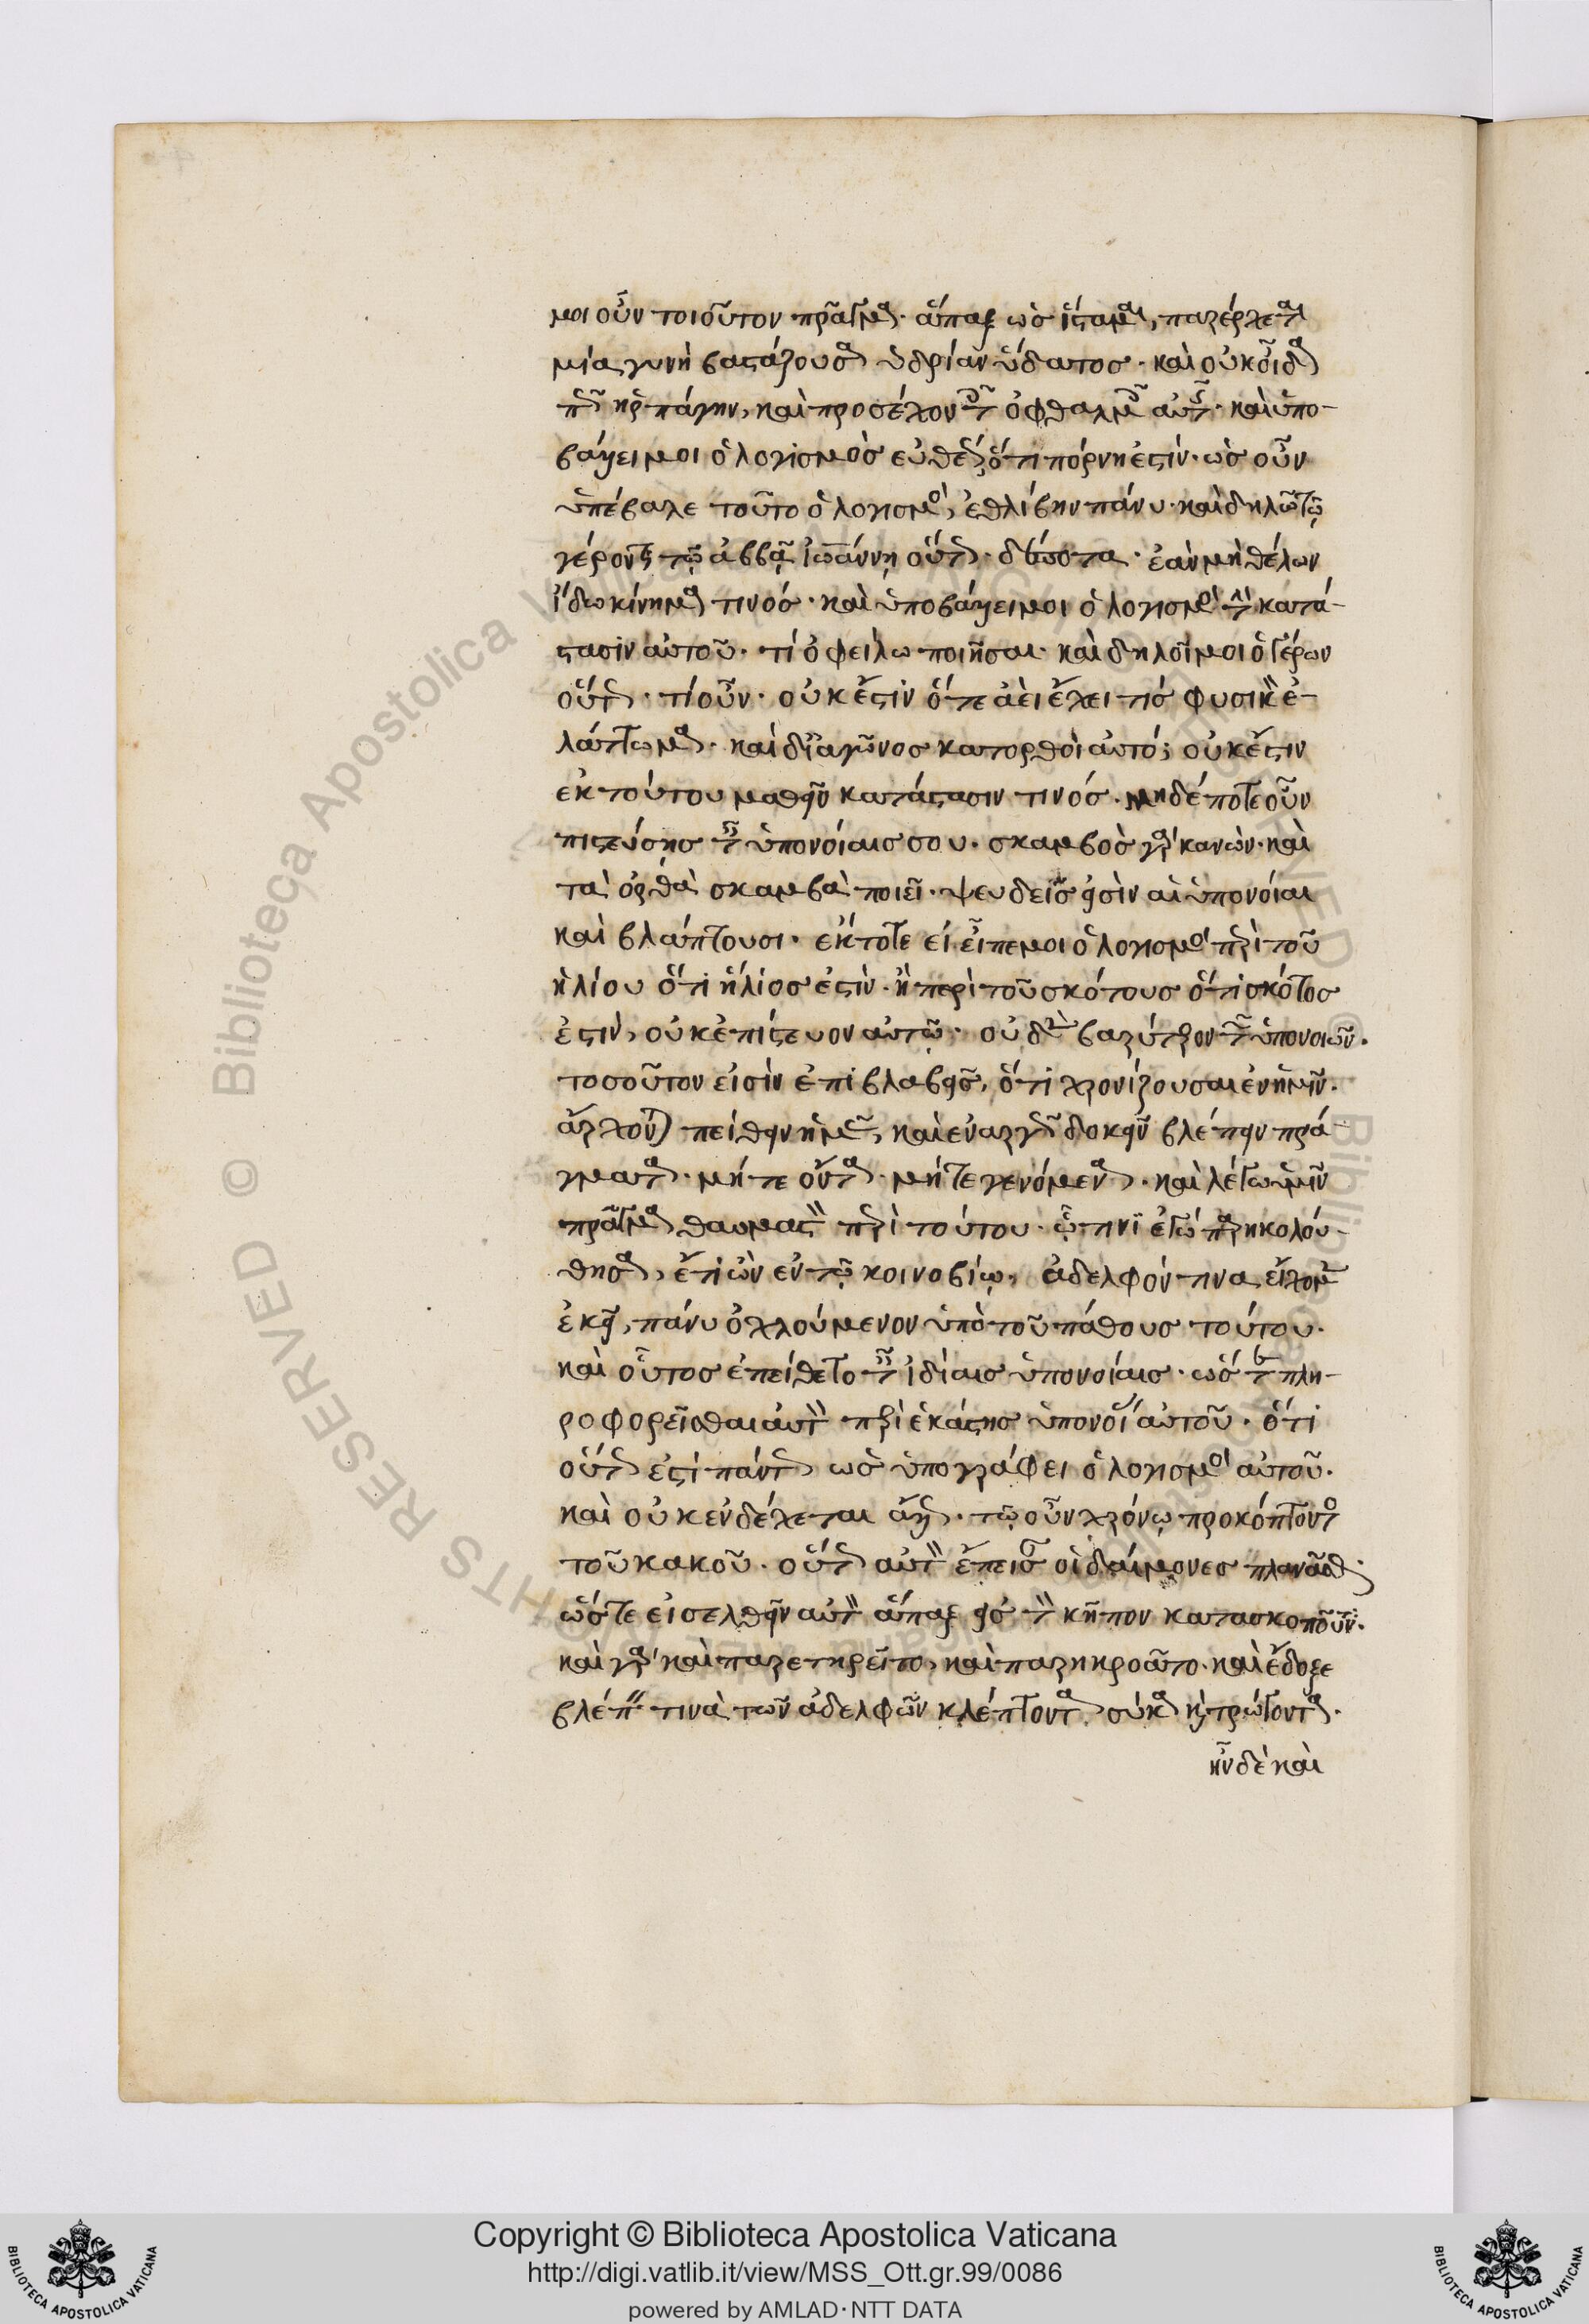 μοι οὖν τοιοῦτον πρᾶγμα. ἅπαξ ὡς ἵσταμαι, παρέρχεται
μία γυνὴ βαστάζουσα ὑδρίαν ὕδατος. καὶ οὐκ οἶδα
πῶς ἡρπάγην, καὶ προσέχον τοῖς ὀφθαλμοῖς αὐτῆς. καὶ ὑπο-
βάλλει μοι ὁ λογισμὸς εὐθέως ὅτι πόρνη ἐστίν. ὡς οὖν
ὑπέβαλε τοῦτο ὁ λογισμὸς, ἐθλίβην πάνυ. καὶ δηλῶ τῷ
γέροντι τῷ ἀββᾷ ἰωάννῃ οὕτως. δέσποτα. ἐὰν μὴ θέλων
ἴδω κίνημα τινός. καὶ ὑποβάλλει μοι ὁ λογισμὸς τὴν κατά-
στασιν αὐτοῦ. τί ὀφείλω ποιῆσαι. καὶ δηλοῖ μοι ὁ γέρων
οὕτως. τί οὖν. οὐκ ἔστιν ὅτε ἀεὶ ἔχει τίς φυσικὸν ἐ-
λάττωμα. καὶ δι' ἀγῶνος κατορθοῖ αὐτό; οὐκ ἔστιν
ἐκ τούτου μαθεῖν κατάστασιν τινός. μηδέποτε οὖν
πιστεύσῃς ταῖς ὑπονοίαις σου. σκαμβὸς γὰρ κανὼν. καὶ
τὰ ὀρθὰ σκαμβὰ ποιεῖ. ψευδεῖς εἰσὶν αἱ ὑπονοίαι
καὶ βλάπτουσι. ἔκτοτε εἰ εἶπε μοι ὁ λογισμὸς περὶ τοῦ
ἡλίου ὅτι ἥλιος ἐστὶν. ἢ περὶ τοῦ σκότους ὅτι σκότος
ἐστὶν, οὐκ ἐπίστευον αὐτῷ. οὐδὲν βαρύτερον τῶν ὑπονοιῶν.
τοσοῦτον εἰσὶν ἐπιβλαβεῖς, ὅτι χρονίζουσαι ἐν ἡμῖν.
ἄρχονται πείθειν ἡμᾶς, καὶ ἐναργῶς δοκεῖν βλέπειν πρά-
γματα. μήτε ὄντα. μήτε γενόμενα. καὶ λέγω ὑμῖν
πρᾶγμα θαυμαστὸν περὶ τούτου. ᾧτινι ἐγὼ παρηκολού-
θησα, ἔτι ὢν ἐν τῷ κοινοβίῳ, ἀδελφόν τινα εἴχομεν
ἐκεῖ, πάνυ ὀχλούμενον ὑπὸ τοῦ πάθους τούτου.
καὶ οὗτος ἐπείθετο ταῖς ἰδίαις ὑπονοίαις. ὥστε πλη-
ροφορεῖσθαι αὐτὸν περὶ ἑκάστης ὑπονοίας αὐτοῦ. ὅτι
οὕτως ἐστὶ πάντως ὡς ὑπογράφει ὁ λογισμὸς αὐτοῦ.
καὶ οὐκ ἐνδέχεται ἄλλως. τῷ οὖν χρόνῳ προκόπτοντος
τοῦ κακοῦ. οὕτως αὐτὸν ἔπεισαν οἱ δαίμονες πλανᾶσθαι.
ὥστε εἰσελθεῖν αὐτὸν ἅπαξ εἰς τὸν κῆπον κατασκοποῦντα.
καὶ γὰρ καὶ παρετηρεῖτο, καὶ παρηκροᾶτο. καὶ ἔδοξε
βλέπειν τινὰ τῶν ἀδελφῶν κλέπτοντα σύκα καὶ τρώγοντα.
ἦν δὲ καὶ
Copyright © Biblioteca Apostolica Vaticana
http://digi.vatlib.it/view/MSS_Ott.gr.99/0086
powered by AMLAD·NTT DATA